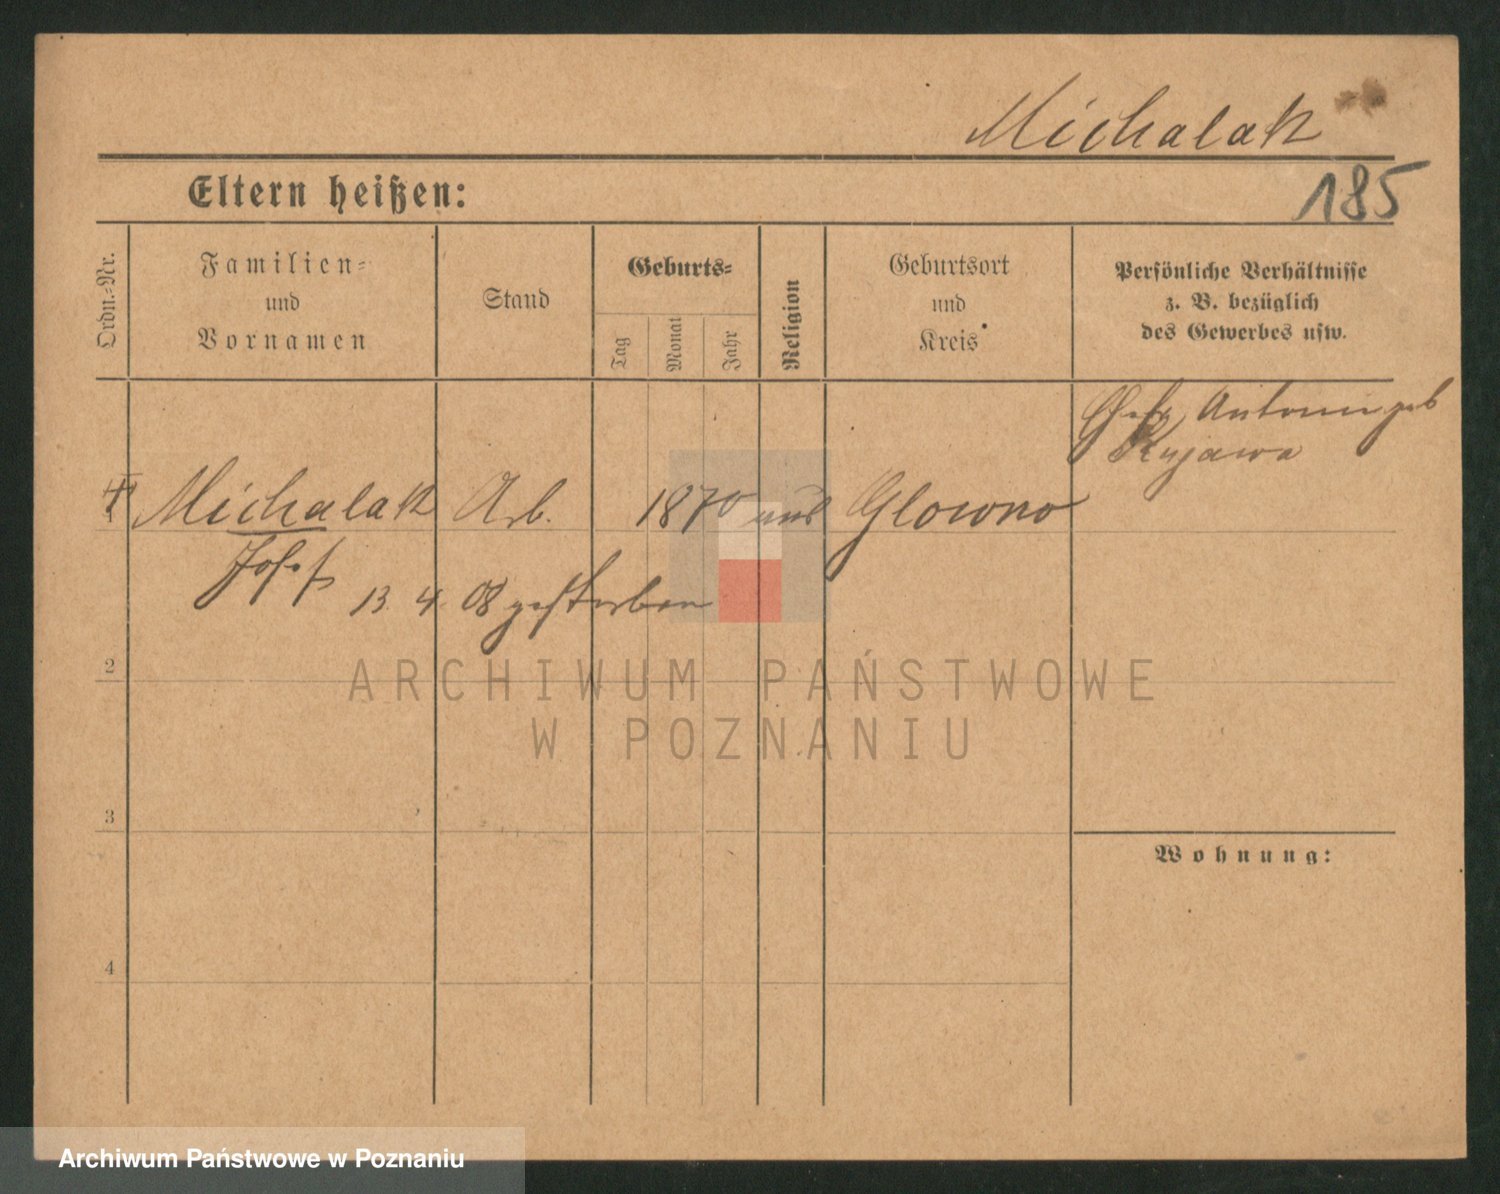 Michalak
185
Eltern heißen:
Ordn.-Nr.
Familien-
und
Vornamen
Stand
Geburts-
Tag
Monat
Jahr
Religion
Geburtsort
und
Kreis
Persönliche Verhältnisse
z. B. bezüglich
des Gewerbes usw.
Antonin geb
Kujawa
1 Michalak Arb. 1870 aus Glowno
Josef
13. 4. 08 gestorben
2
ARCHIWUM PAŃSTWOWE
W POZNANIU
3
Wohnung:
4
Archiwum Państwowe w Poznaniu